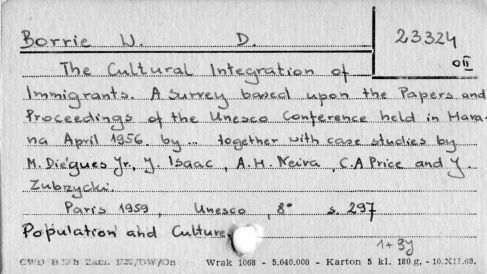 Borrie W. D.
23324
OII
The Cultural Integration of
Immigrants. A survey based upon the Papers and
Proceedings of the Unesco Conference held in Hava-
na April 1956. by ... together with case studies by
M. Diégues Jr., J. Isaac, A.H. Neiva, C.A Price and J.
Zubrzycki.
Paris 1959, Unesco, 8° s. 297
Population and Culture.
1+3y
CWD Zam. /DW/On Wrak 1068 - 5.040.000 - Karton 5 kl. 180 g. - 10.XII.68.